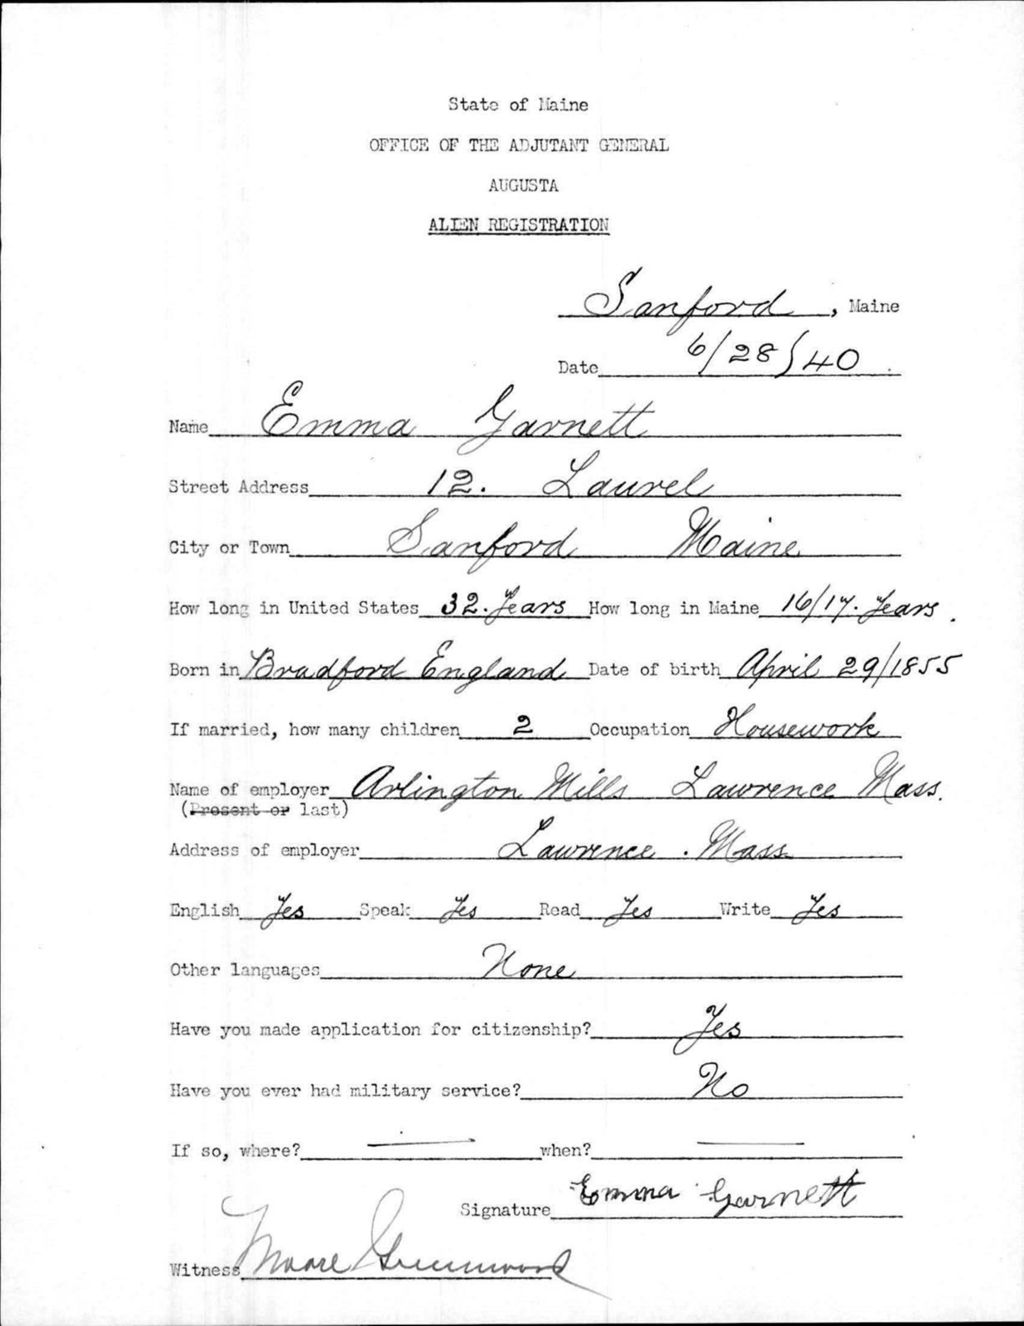 State of Maine
OFFICE OF THE ADJUTANT GENERAL
AUGUSTA
ALIEN REGISTRATION
Sanford, Maine
Date 6/28/40
Name Emma Garnett
Street Address 12. Laurel
City or Town Sanford Maine
How long in United States 32. Years How long in Maine 16/17. Years.
Born in Bradford England Date of birth April 29/1855
If married, how many children 2 Occupation Housework
Name of employer Arlington Mills Lawrence Mass.
(Present or last)
Address of employer Lawrence. Mass
English Yes Speak Yes Read Yes Write Yes
Other languages None
Have you made application for citizenship? Yes
Have you ever had military service? No
If so, where? — when? —
Signature Emma Garnett
Witness Greenwood